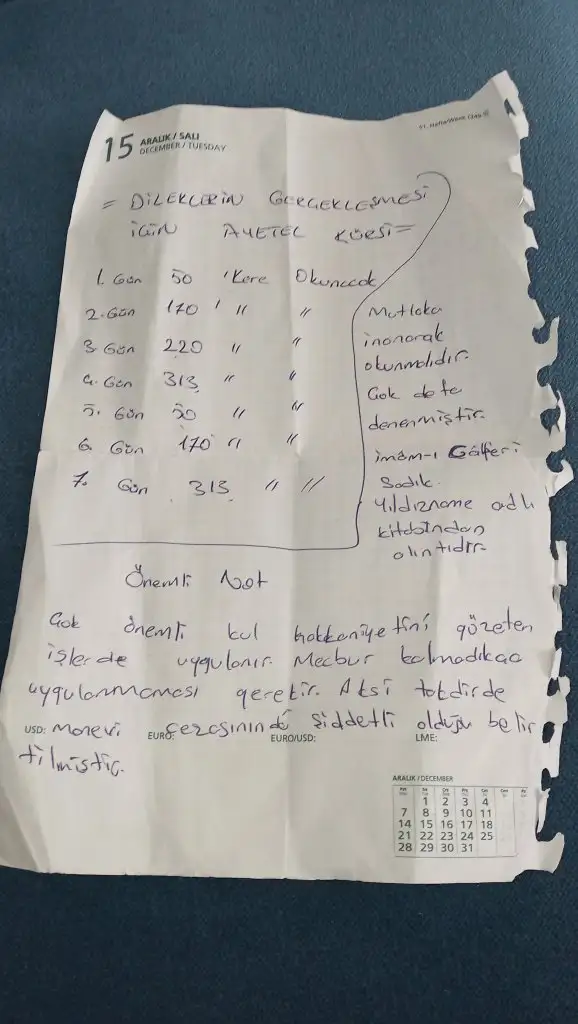 15 ARALIK / SALI
DECEMBER / TUESDAY
51. Hafta/Week
= DİLEKLERİN GERÇEKLEŞMESİ
İÇİN AYETEL KÜRSİ =
1. Gün 50 Kere Okunacak
2. Gün 170 " "
3. Gün 220 " "
4. Gün 313 " "
5. Gün 50 " "
6. Gün 170 " "
7. Gün 313 " "
Mutlaka
inanarak
okunmalıdır.
Çok defa
denenmiştir.
imam-ı Gâlferi
Sadık.
Yıldızname adlı
kitabından
alıntıdır.
Önemli Not
Çok önemli kul hakkaniyetini gözeten
işlerde uygulanır. Mecbur kalmadıkça
uygulanmaması gerekir. Aksi takdirde
manevi cezasınında şiddetli olduğu belir
tilmiştir.
USD: EURO: EURO/USD: LME:
ARALIK / DECEMBER
1 2 3 4
7 8 9 10 11
14 15 16 17 18
21 22 23 24 25
28 29 30 31